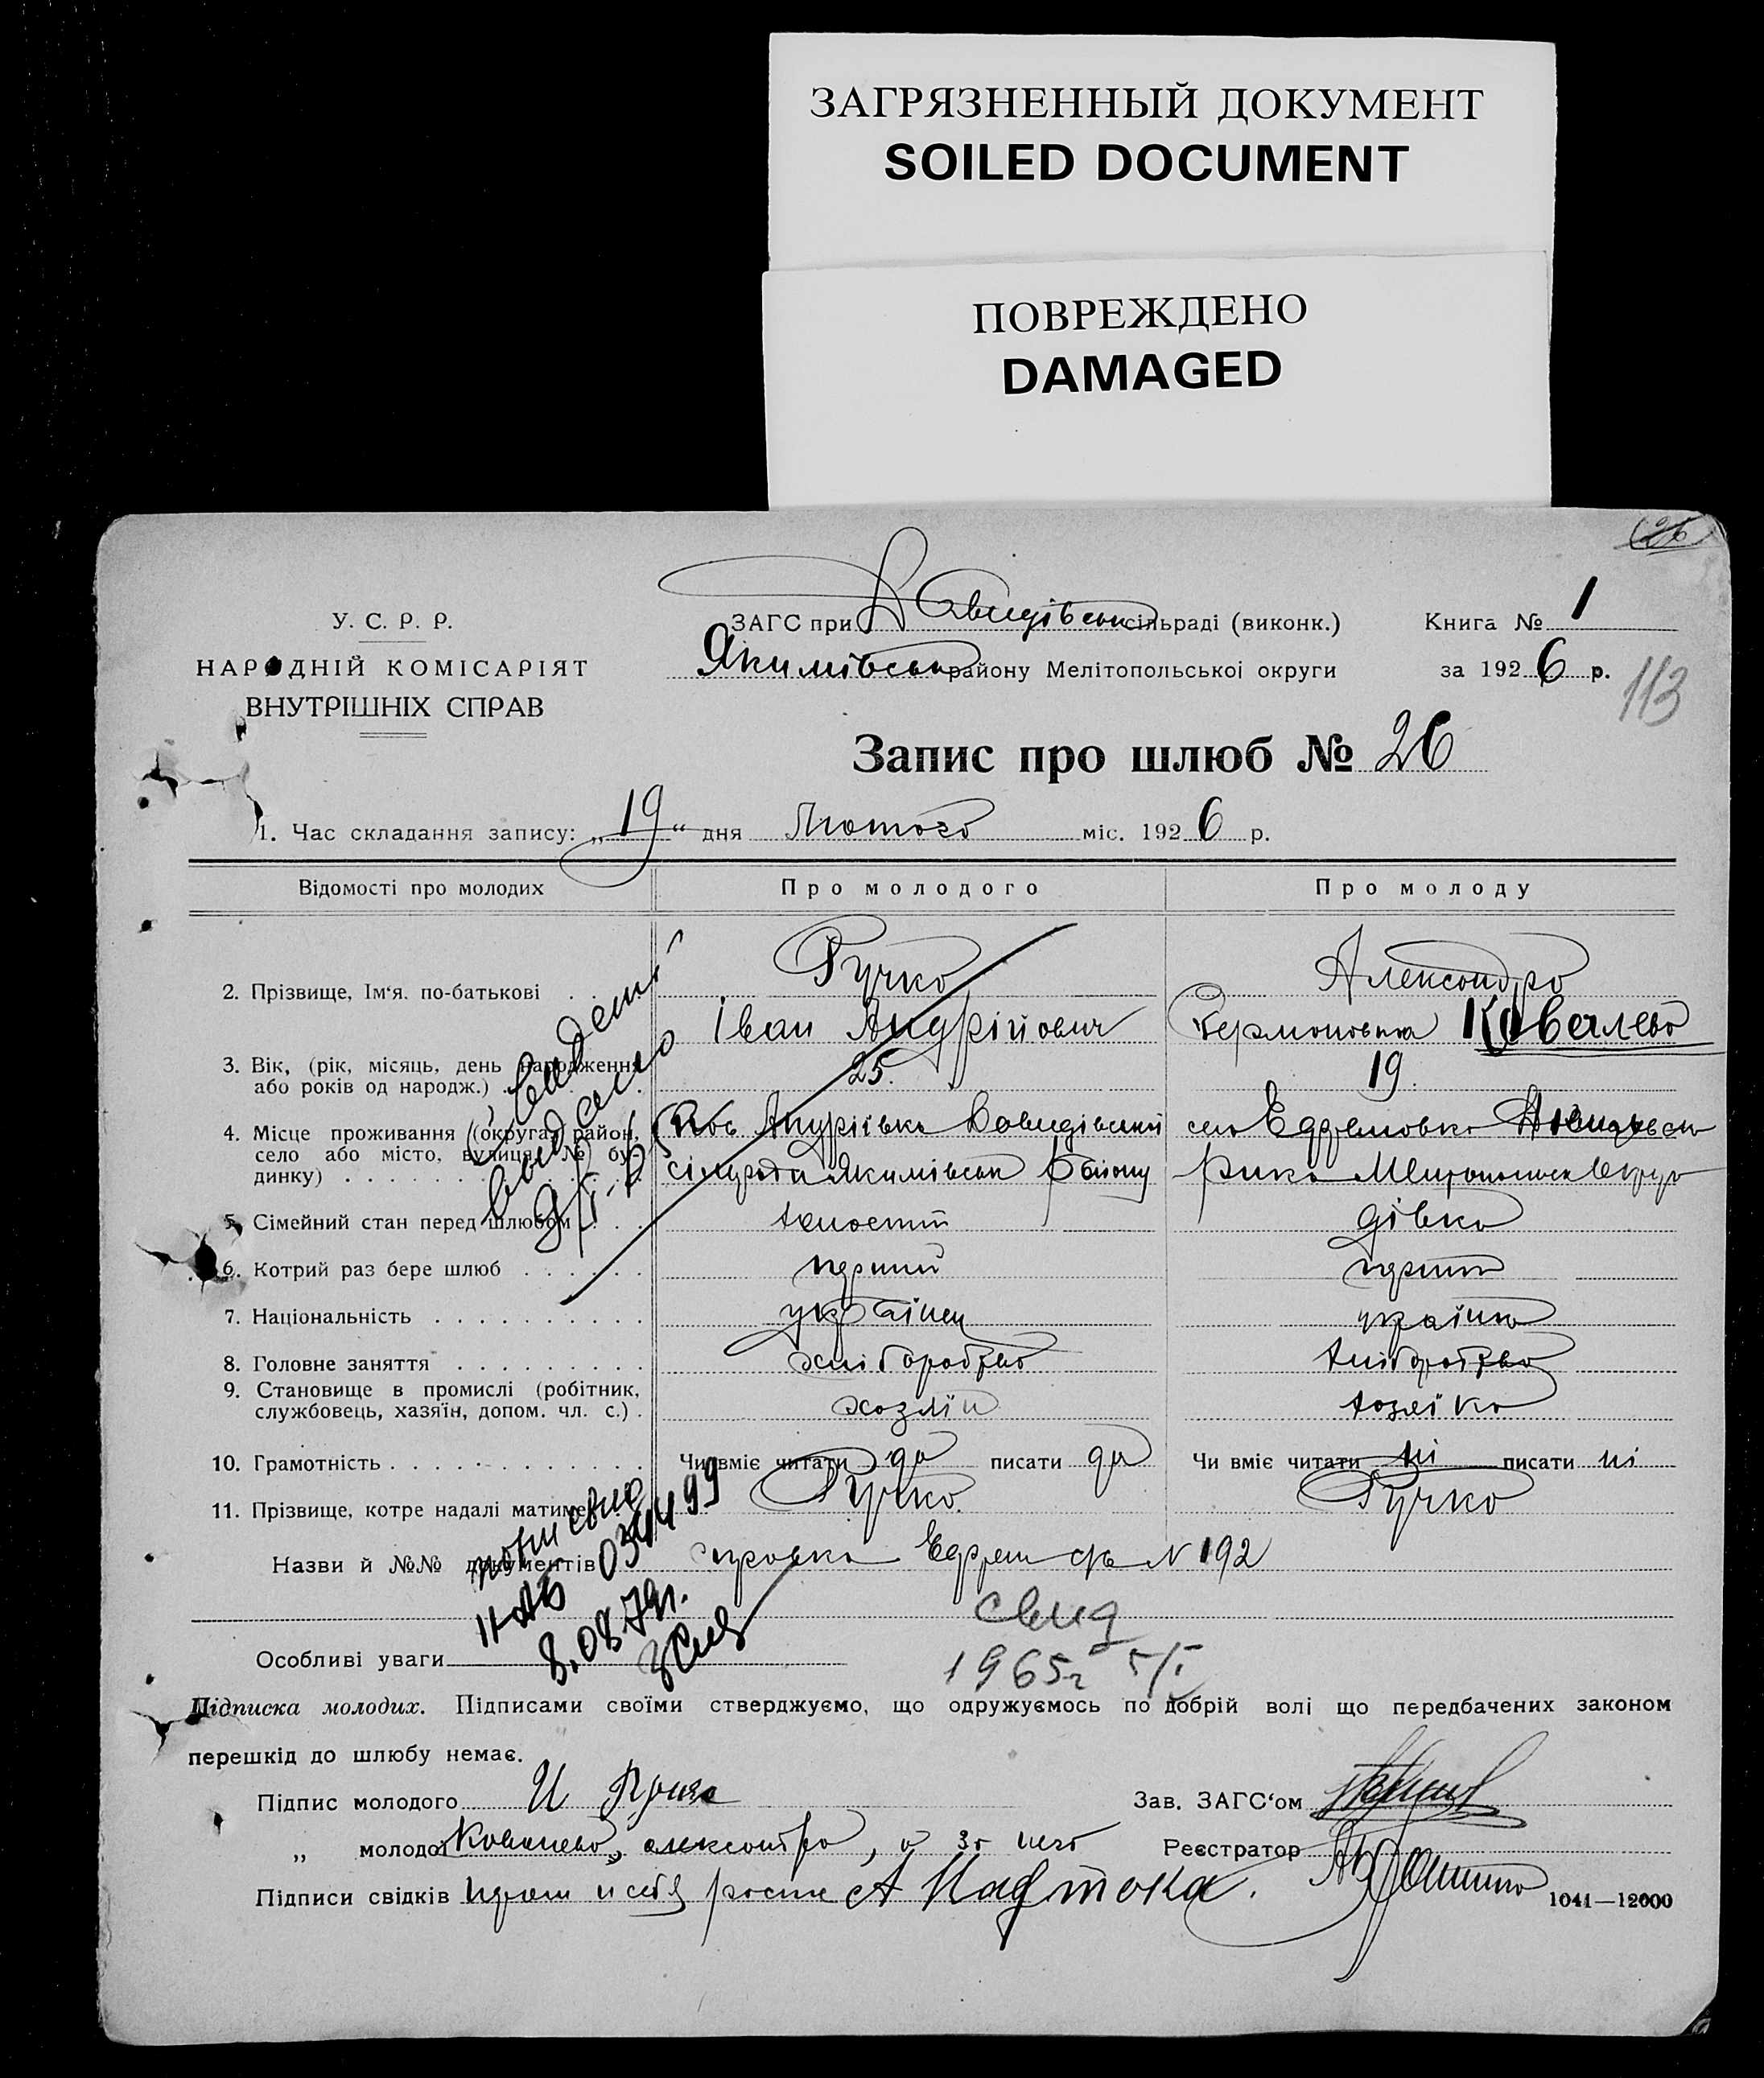 ЗАГРЯЗНЕННЫЙ ДОКУМЕНТ
SOILED DOCUMENT
ПОВРЕЖДЕНО
DAMAGED
26
У. С. Р. Р.
НАРОДНІЙ КОМІСАРІЯТ
ВНУТРІШНІХ СПРАВ
ЗАГС при Давидівськ сільраді (виконк.)
Якимівськ району Мелітопольської округи
Книга № 1
за 1926 р.
113
Запис про шлюб № 26
1. Час складання запису: „19“ дня Лютого міс. 1926 р.
Відомості про молодих Про молодого Про молоду
2. Прізвище, Ім‘я. по-батькові Ручко Александра
Іван Андрійович Ковалева
3. Вік, (рік, місяць, день народження або років од народж.) 25. 19.
4. Місце проживання (округа, район, село або місто, вулиця, № будинку)
Андріївка Давидівській село Ефремовка
сільради Якимівськ району
5. Сімейний стан перед шлюбом дівка
6. Котрий раз бере шлюб перший перший
7. Національність українец українка
8. Головне заняття хліборобство хліборобство
9. Становище в промислі (робітник, службовець, хазяїн, допом. чл. с.) хозяїн хозяїка
10. Грамотність Чи вміє читати да писати да Чи вміє читати ні писати ні
11. Прізвище, котре надалі матиме Ручко Ручко
Назви й №№ документів справка Ефрем с/р № 192
034499
8.08.79г.
свид
1965г 5/I
Особливі уваги
Підписка молодих. Підписами своїми стверджуємо, що одружуємось по добрій волі що передбачених законом
перешкід до шлюбу немає.
Підпис молодого И Ручко
Зав. ЗАГС‘ом
„ молодої Ковалева александра, а за неї
Реєстратор
Підписи свідків
1041—12000